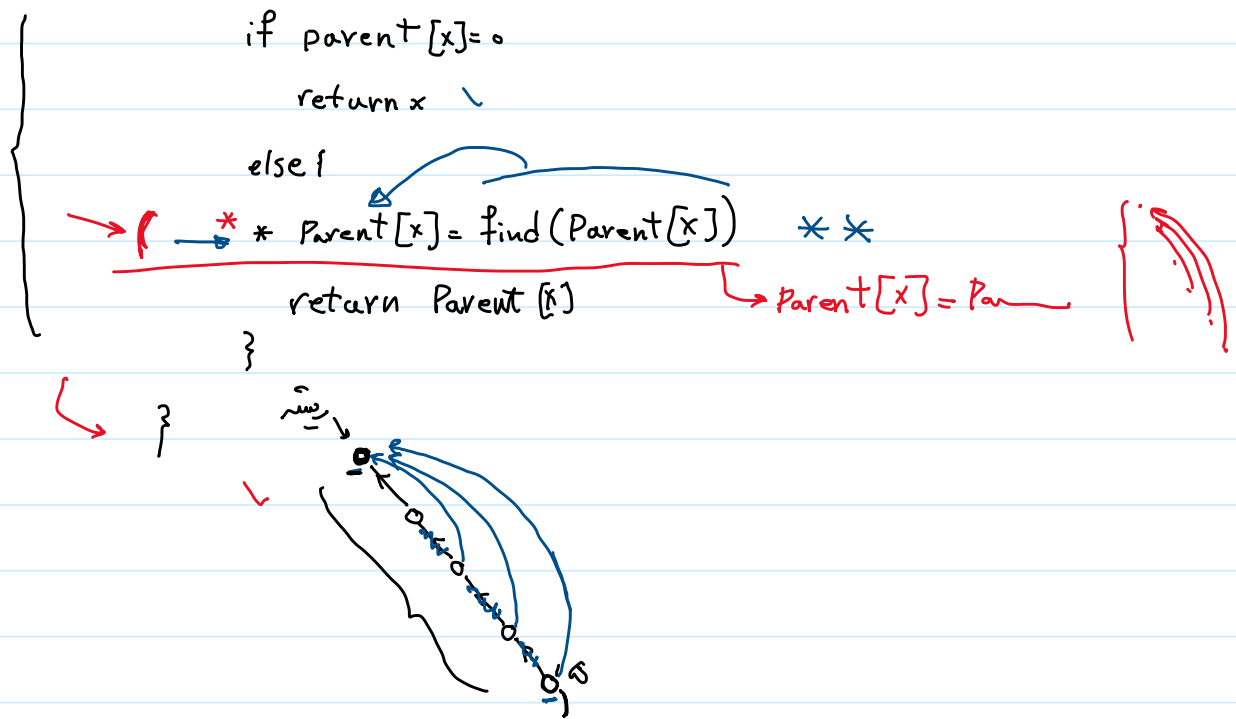 if parent[x]=0
return x
else {
* * Parent[x] = find(Parent[x]) * *
return Parent[x]
Parent[x] = Pa
}
}
رئیس